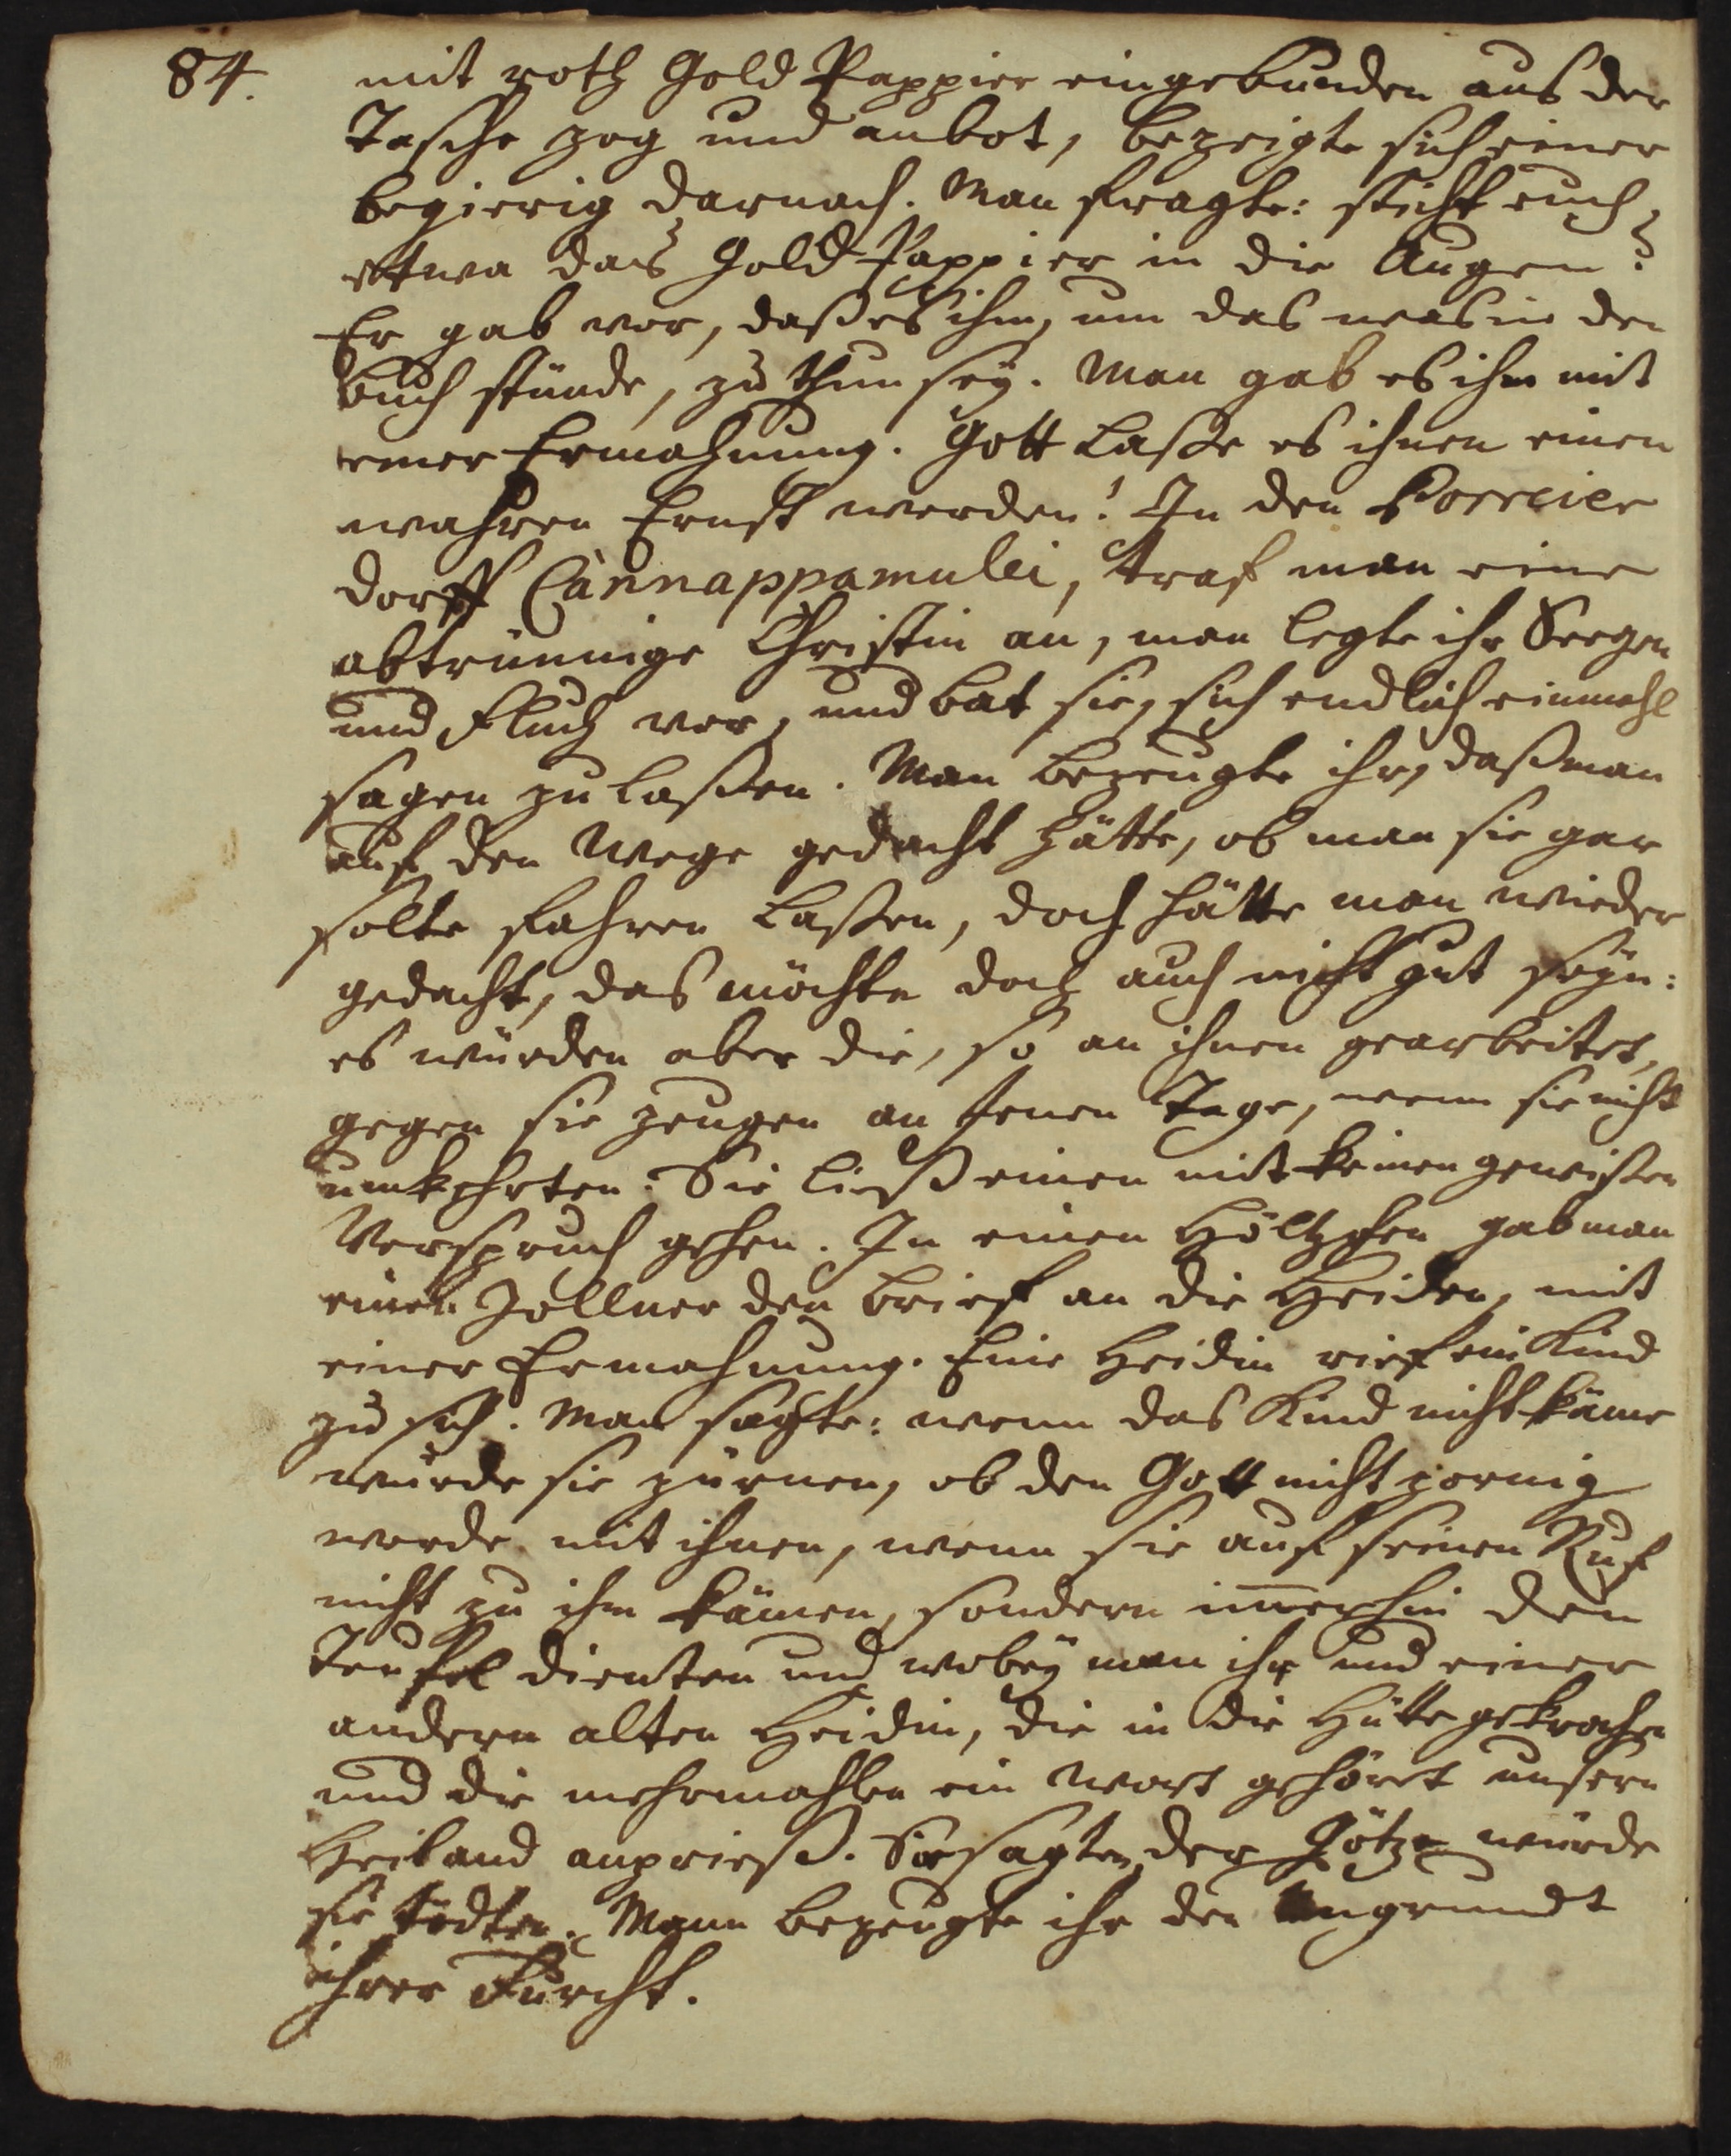 84.
mit roth Gold Pappier eingebunden aus der
Tasche zog und anbot, bezeigte sich einer
begierig darnach. Man fragte: sticht euch
etwa das Gold-Pappier in die Augen?
Er gab vor, daß es ihm, um das was in den
Buch stünde, zu thun sey. Man gab es ihm mit
einer Ermahnung. Gott laße es ihnen einen
wahren Ernst werden! In den Porreier
dorff Cannappamulei, traf man eine
abtrünnige Christin an, man legte ihr Seegen
und Fluch vor, und bat sie, sich endlich einmahl
sagen zu laßen. Man bezeugte ihr, daß man
auf den Wege gedacht hätte, ob man sie gar
solte fahren laßen, doch hätte man wieder
gedacht, das möchte doch auch nicht gut seyn:
es würden aber die, so an ihnen gearbeitet,
gegen sie zeugen an jenen Tage, wenn sie nicht
umkehrten. Sie ließ einen mit keinen gewißen
Verspruch gehen. In einen Höltzchen gab man
einen Zollner den Brief an die Heiden, mit
einer Ermahnung. Eine Heidin rief ein Kind
zu sich. Man sagte: wenn das Kind nicht käme
würde sie zürnen, ob den Gott nicht zornig
werde mit ihnen, wenn sie auf seinen Ruf
nicht zu ihm kämen, sondern im̅erhin den
Teufel dienten und wobey man ihr und einer
andern alten Heidin, die in die Hütte gekrochen
und die mehrmahlen ein Wort gehöret unsern
Heiland anprieß. Sie sagten der Götze würde
sie tödten. Mann bezeugte ihr den Ungrundt
ihrer Furcht.